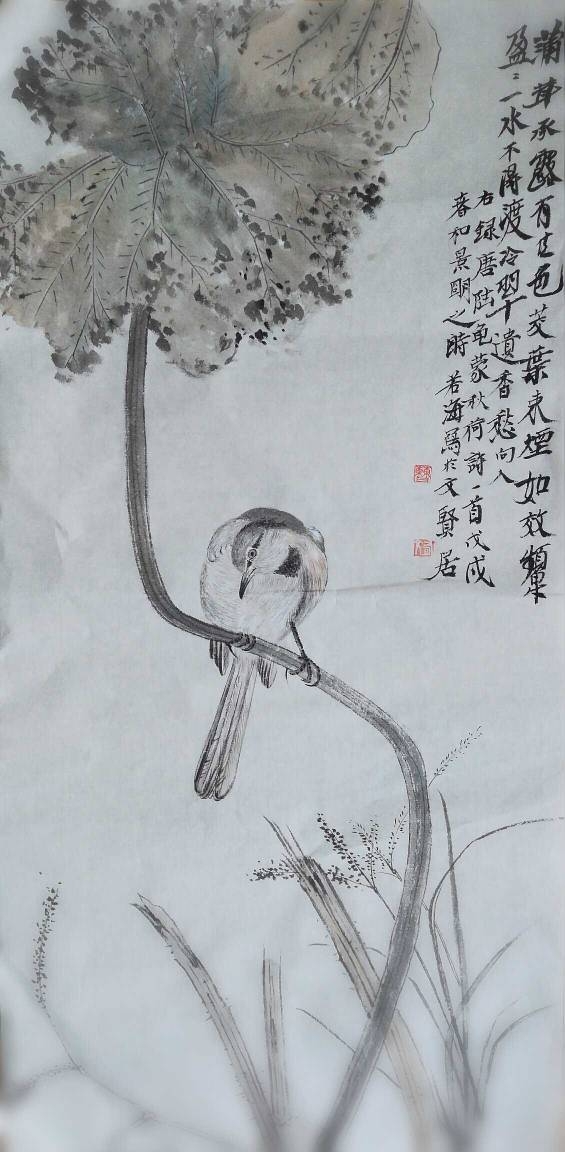 蒲茸承露有佳色茭葉束煙如效顰
盈〻一水不得渡冷翠遺香愁向人
右録唐陸龜蒙秋荷詩一首戊戌
春和景明之時若海寫於文賢居